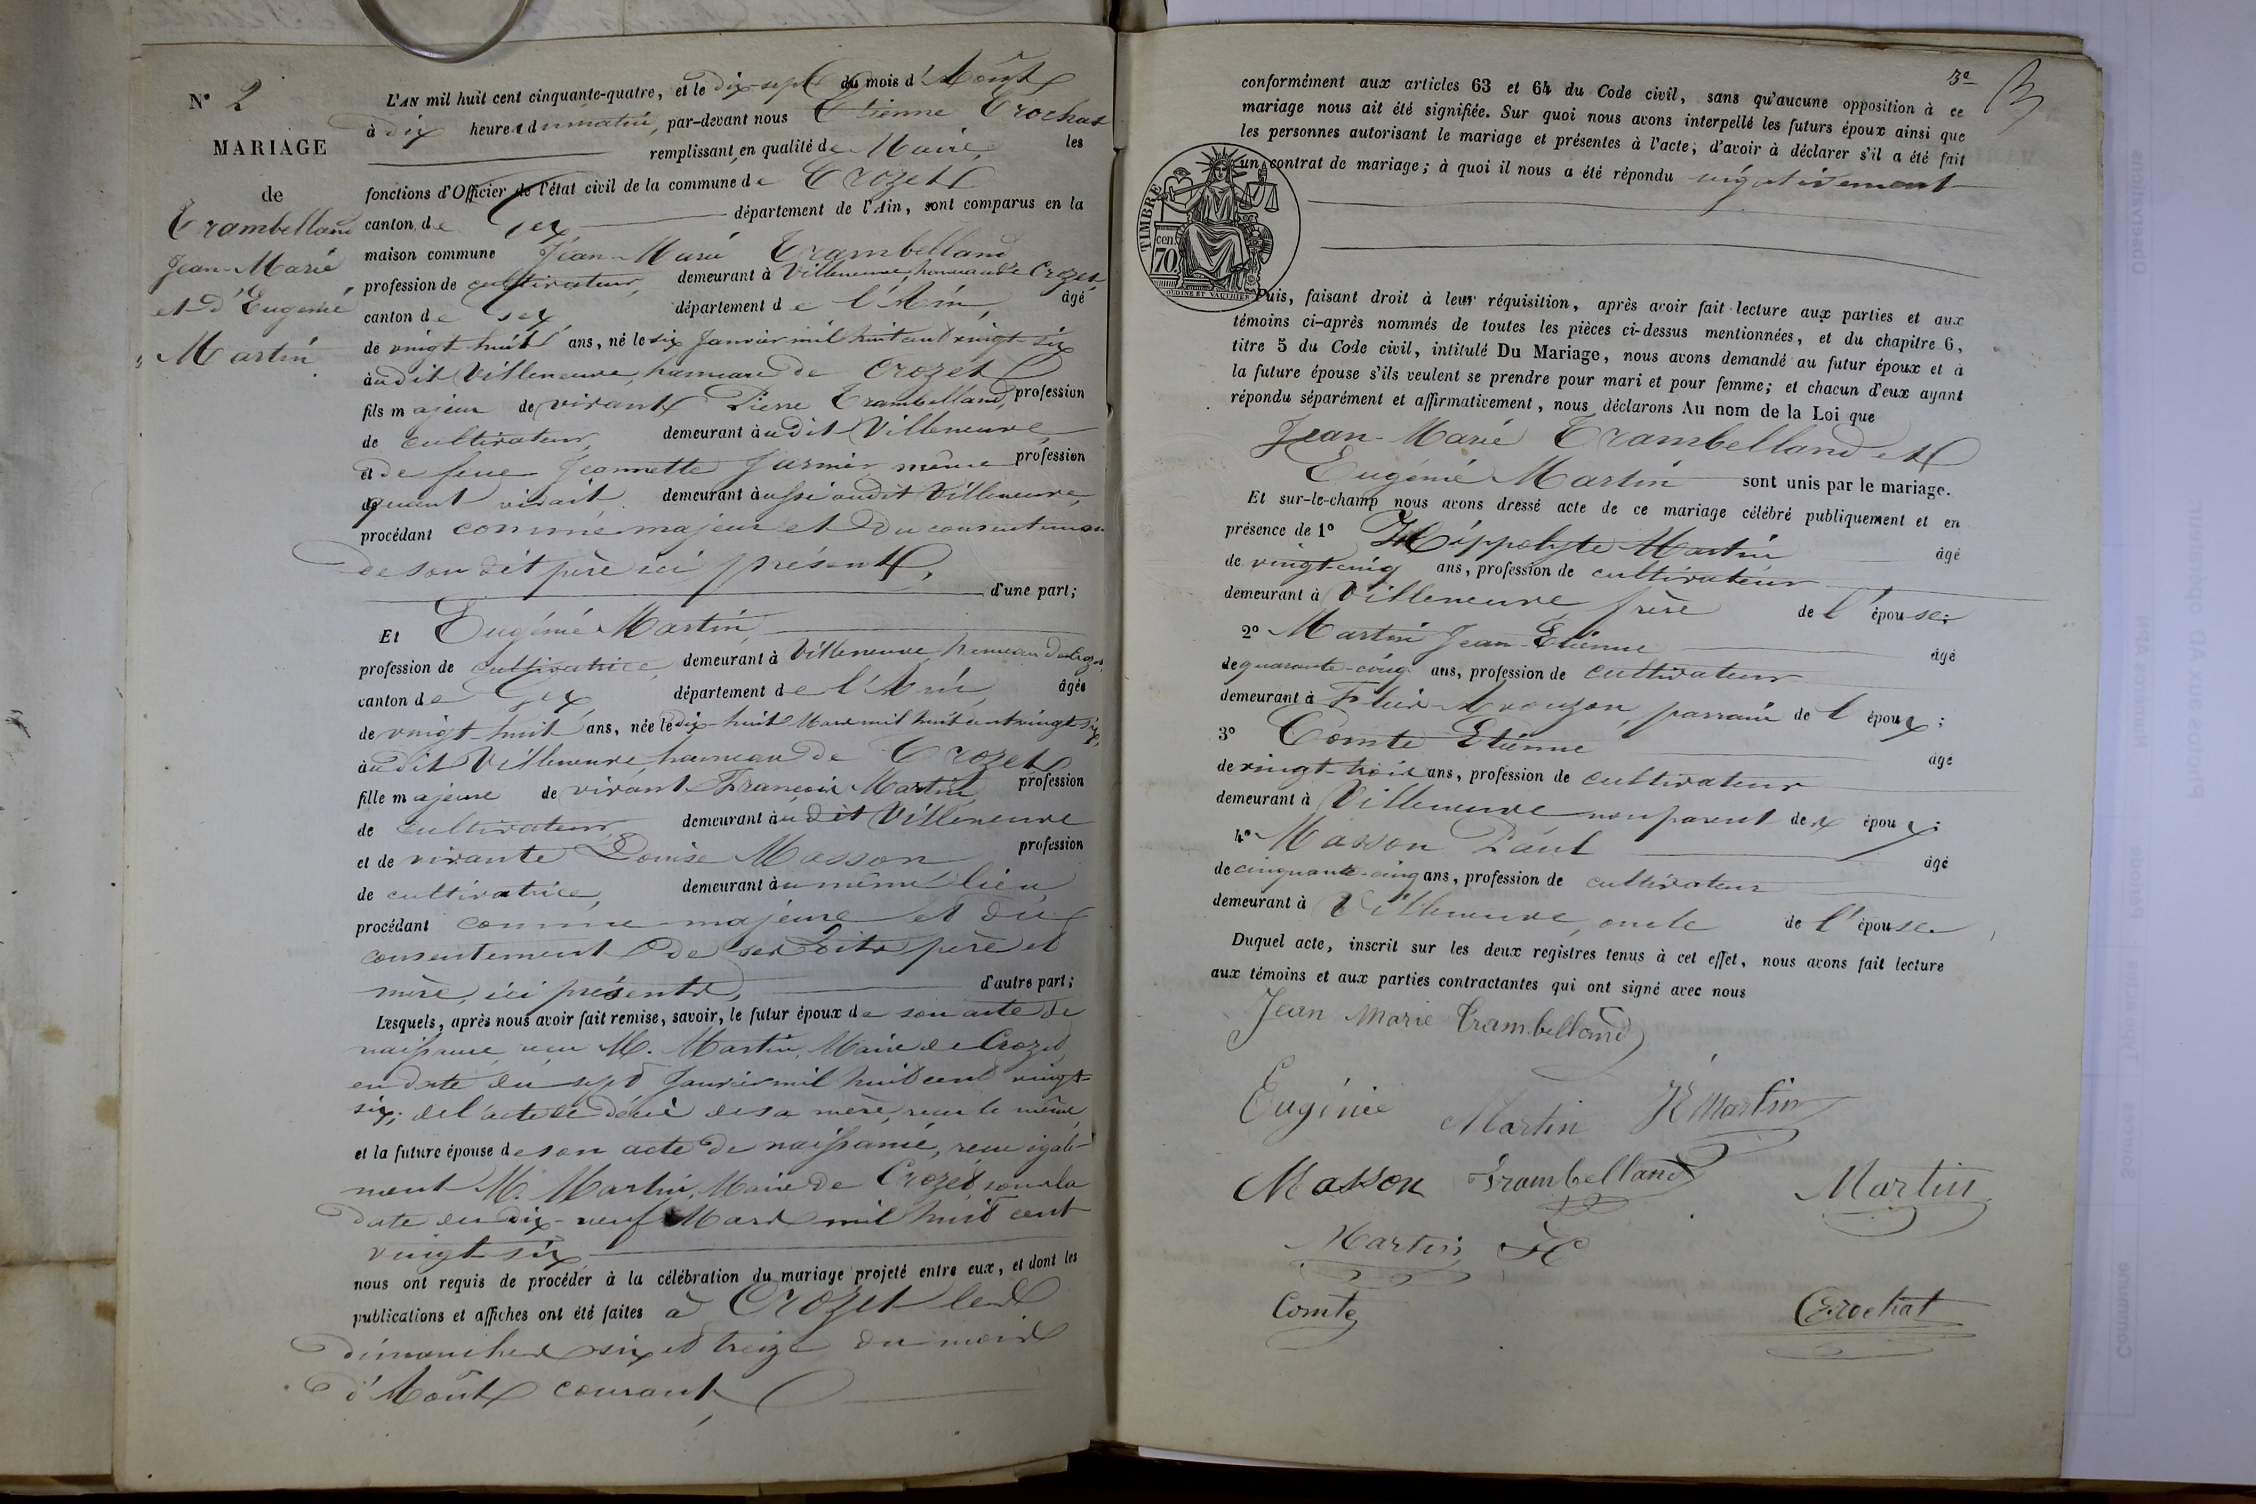 N° 2
MARIAGE
de
Trambelland
Jean-Marie
et d'Eugénie
Martin
L'AN mil huit cent cinquante-quatre, et le dix-sept du mois d'Août
à dix heures du matin, par-devant nous Etienne Crochat
remplissant, en qualité de Maire, les
fonctions d'Officier de l'état civil de la commune de Crozet
canton de Gex département de l'Ain, sont comparus en la
maison commune Jean-Marie Trambelland
profession de cultivateur, demeurant à Villeneuve, hameau de Crozet
canton de Gex, département de l'Ain, âgé
de vingt huit ans, né le six Janvier mil huit cent vingt six
àudit Villeneuve, hameau de Crozet
fils majeur de vivant Pierre Trambelland, profession
de cultivateur, demeurant àudit Villeneuve
et de feue Jeannette même profession
de quant vivait demeurant àussi audit Villeneuve,
procédant comme majeur et du consentement
de son dit père ici présent,
d'une part;
Et Eugénie Martin
profession de cultivatrice, demeurant à Villeneuve, hameau de Crozet,
canton de Gex, département de l'Ain, âgée
de vingt huit ans, née le dix-huit Mars mil huit cent vingt six,
àudit Villeneuve hameau de Crozet
fille majeure de vivant François Martin profession
de cultivateur, demeurant àudit Villeneuve
et de vivante Louise Masson profession
de cultivatrice, demeurant àu même lieu
procédant comme majeure et du
consentement de ses dits père et
mère, ici présents, d'autre part;
Lesquels, après nous avoir fait remise, savoir, le futur époux de son acte de
naissance reçu M. Martin, Maire de Crozet
en date du sept Janvier mil huit cent vingt-
six; de l'acte de décès de sa mère, reçu le même,
et la future épouse de son acte de naissance, reçu égale-
ment M. Martin, Maire de Crozet sous la
date du dix-neuf Mars mil huit cent
vingt six
nous ont requis de procéder à la célébration du mariage projeté entre eux, et dont les
publications et affiches ont été faites à Crozet les
dimanches six et treize du mois
d'Août courant,
3e
conformément aux articles 63 et 64 du Code civil, sans qu'aucune opposition à ce
mariage nous ait été signifiée. Sur quoi nous avons interpellé les futurs époux ainsi que
les personnes autorisant le mariage et présentes à l'acte, d'avoir à déclarer s'il a été fait
un contrat de mariage; à quoi il nous a été répondu négativement
TIMBRE
cen.
70
OUDINE ET VAUTHIER
Puis, faisant droit à leur réquisition, après avoir fait lecture aux parties et aux
témoins ci-après nommés de toutes les pièces ci-dessus mentionnées, et du chapitre 6,
titre 5 du Code civil, intitulé Du Mariage, nous avons demandé au futur époux et à
la future épouse s'ils veulent se prendre pour mari et pour femme; et chacun d'eux ayant
répondu séparément et affirmativement, nous déclarons Au nom de la Loi que
Jean-Marie Trambelland et
Eugénie Martin sont unis par le mariage.
Et sur-le-champ nous avons dressé acte de ce mariage célébré publiquement et en
présence de 1° Hippolyte Martin âgé
de vingt-cinq ans, profession de cultivateur
demeurant à Villeneuve frère de l'épouse;
2° Martin Jean-Etienne âgé
de quarante-cinq ans, profession de cultivateur
demeurant à parrain de l époux;
3° Comte Etienne âgé
de vingt-trois ans, profession de cultivateur
demeurant à Villeneuve non parent des époux;
4° Masson Paul âgé
de cinquante-cinq ans, profession de cultivateur
demeurant à Villeneuve, oncle de l'épouse.
Duquel acte, inscrit sur les deux registres tenus à cet effet, nous avons fait lecture
aux témoins et aux parties contractantes qui ont signé avec nous
Jean Marie Trambelland
Eugénie Martin Martin
Masson Trambelland Martin
Martin
Comte Crochat